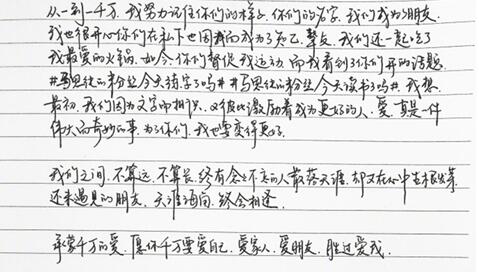 从一到一千万,我努力记住你们的样子、你们的名字,我们成为了朋友,
我也很开心你们在私下也因我而成为了知己、挚友,我们还一起吃了
我最爱的火锅,如今你们督促我运动,而我看到了你们开的话题
#马思纯的粉丝今天练字了吗# #马思纯的粉丝今天读书了吗#,我想
最初,我们因为文字而相识,又彼此激励着成为更好的人,爱真是一件
伟大而奇妙的事,为了你们,我也要变得更好。
我们之间,不算远,不算长,终有会士不意的人散落天涯,却又在心中生根发芽
还未遇见的朋友,天涯海角,终会相逢
承蒙千万的爱,愿你千万要爱自己,爱家人,爱朋友,胜过爱我。